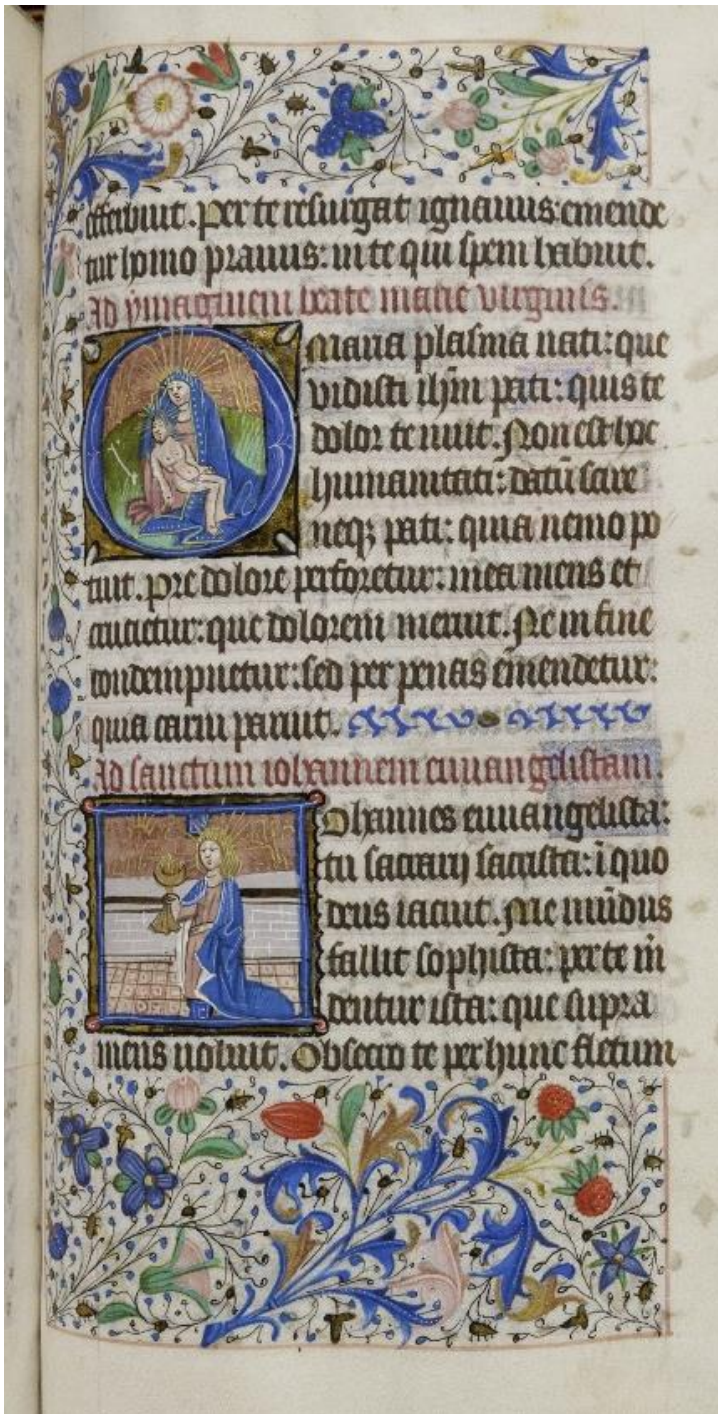 effebuit. Per te resurgat ignauus: emende
tur homo prauus: in te qui spem habuit.
Ad ymaginem beate marie virginis.
Maria plasma nati: que
vidisti ihm̄ pati: quis te
dolor tenuit. Non est hoc
humanitati: datū scire
neqꝫ pati: quia nemo po
tuit. Pre dolore perforetur: mea mens et
crucietur: que dolorem meruit. Ne in fine
condempnetur: sed per penas emendetur:
quia carni paruit.
Ad sanctum iohannem euuangelistam.
Iohannes euuangelista:
tu sacrarij sacrista: ī quo
deus iacuit. Me mūdus
fallit sophista: per te ī
dentur ista: que supra
mens uoluit. Obsecro te per hunc fletum